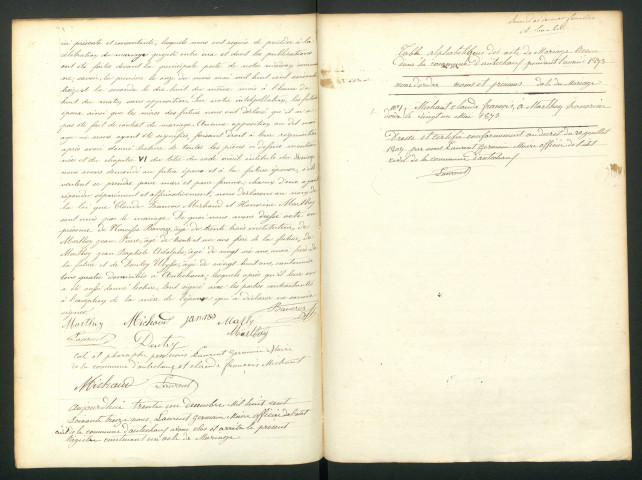 ici présente et consentante, lesquels nous ont requis de procéder à la
célébration du mariage projeté entre eux et dont les publications
ont été faites devant la principale porte de notre maison commune
savoir, la première le onze du mois mai mil huit cent soixante
treize et la seconde le dix huit du même mois à l'heure de
huit du matin sans opposition. Sur notre interpellation, les futurs
époux ainsi que les mères des futurs nous ont déclaré que il n'a
pas été fait de contrat de mariage. Aucune opposition au dit mariage
ne nous ayant été signifiée, faisant droit à leur réquisition
après avoir donné lecture de toutes les pièces ci dessus mentionnées
et du chapitre VI du titre du code civil intitulé du Mariage
nous avons demandé au futur époux et à la future épouse, s'ils
veulent se prendre pour mari et pour femme, chacun d'eux ayant
répondu séparément et affirmativement, nous déclarons au nom de
la loi que Claude François Michaud et Honorine Marthey
sont unis par le mariage. De quoi nous avons dressé acte en
présence de Baverey, âgé de trente trois ans, instituteur, de
Marthey Jean Pierre, âgé de trente et un ans frère de la future, de
Marthey Jean Baptiste Adolphe, âgé de vingt six ans aussi frère de
la future et de Douhy Ulysse, âgé de vingt huit ans, cantonnier
tous quatre domiciliés à ; lesquels après qu'il leur en
a été aussi donné lecture, ont signé avec les parties contractantes
à l'exception de la mère de l'épouse qui a déclaré ne savoir
signer.
Marthey Michaud Marthey Baverey
Laurent Douhy Marthey
Coté et paraphé par nous Laurent Germain Maire
de la commune d' et claude françois Michaud
Michaud Laurent
Aujourd'hui trente un décembre Mil huit cent
Soixante treize nous, Laurent Germain Maire officier de l'état
civil de la commune d' avons clos et arrêté le présent
Registre contenant un acte de Mariage
Table alphabétique des actes de Mariage
dans la commune d' pendant l'année 1873
numéro d'ordre noms et prénoms date du Mariage
N° 1, Michaud claude françois, à Marthey honorine
le vingt un Mai 1873
Dressé et certifié conformément au décret du 20 juillet
1807 par nous Laurent Germain Maire officier de l'état
civil de la commune d'
Laurent